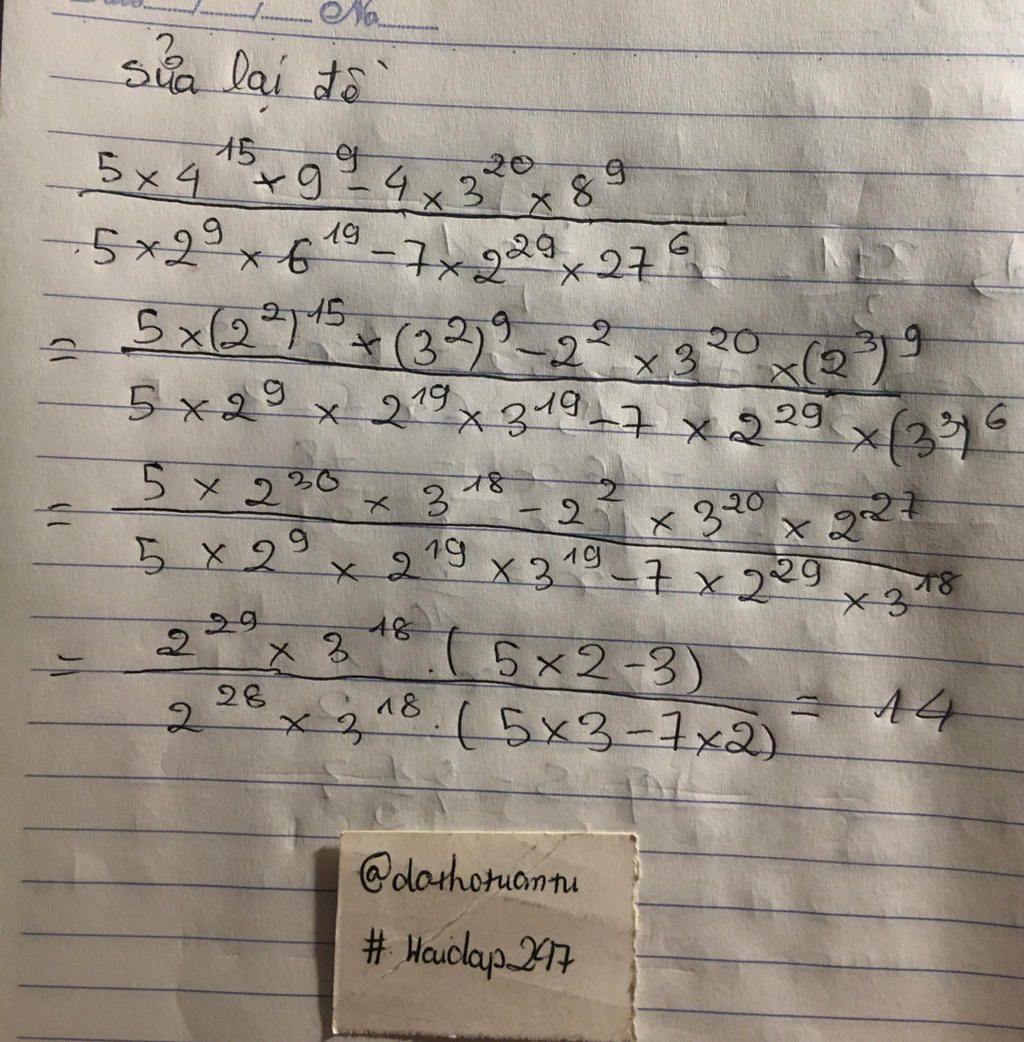 No
sửa lại đề
5 × 4^15 × 9^9 - 4 × 3^20 × 8^9
5 × 2^9 × 6^19 - 7 × 2^29 × 27^6
= 5 × (2^2)^15 × (3^2)^9 - 2^2 × 3^20 × (2^3)^9
5 × 2^9 × 2^19 × 3^19 - 7 × 2^29 × (3^3)^6
= 5 × 2^30 × 3^18 - 2^2 × 3^20 × 2^27
5 × 2^9 × 2^19 × 3^19 - 7 × 2^29 × 3^18
= 2^29 × 3^18 . ( 5 × 2 - 3)
2^28 × 3^18 . ( 5 × 3 - 7 × 2) = 14
@dathotuantu
# Hoidap247